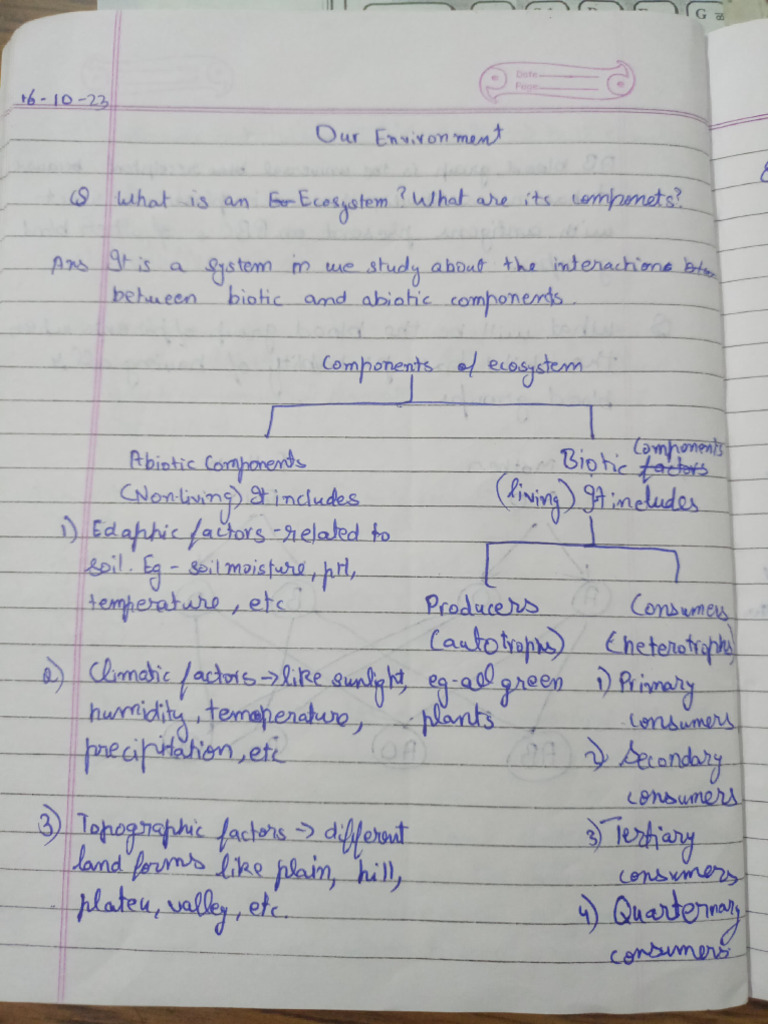 G
Date
Page
16-10-23
Our Environment
Q What is an Ecosystem? What are its componets?
Ans It is a system in we study about the interactions
between biotic and abiotic components.
Components of ecosystem
Abiotic Components
(Non-living) It includes
1) Edaphic factors - related to
soil. Eg - soil moisture, pH,
temperature, etc
2) Climatic factors → like sunlight,
humidity, temperature,
precipitation, etc
3) Topographic factors → different
land forms like plain, hill,
plateu, valley, etc.
Biotic components factors
(living) It includes
Producers
(autotrophs)
eg - all green
plants
Consumers
(heterotrophs)
1) Primary
consumers
2) Secondary
consumers
3) Tertiary
consumers
4) Quarternary
consumers